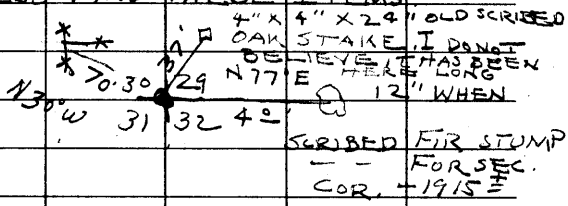 4" X 4" X 24" OLD SCRIBED
OAK STAKE. I DO NOT
BELIEVE IT HAS BEEN
HERE LONG
N 77° E
12" WHEN
37'
70.
30 29
N 30° W
31 32 4º
SCRIBED FIR STUMP
— — FOR SEC.
COR. - 1915 ±